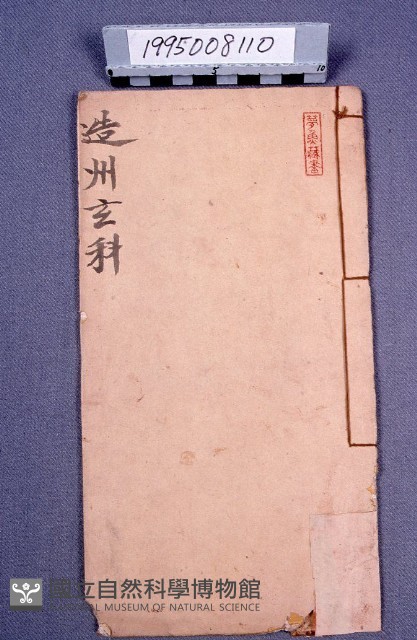 1995008110
5
10
造州玄科
國立自然科學博物館
NATIONAL MUSEUM OF NATURAL SCIENCE